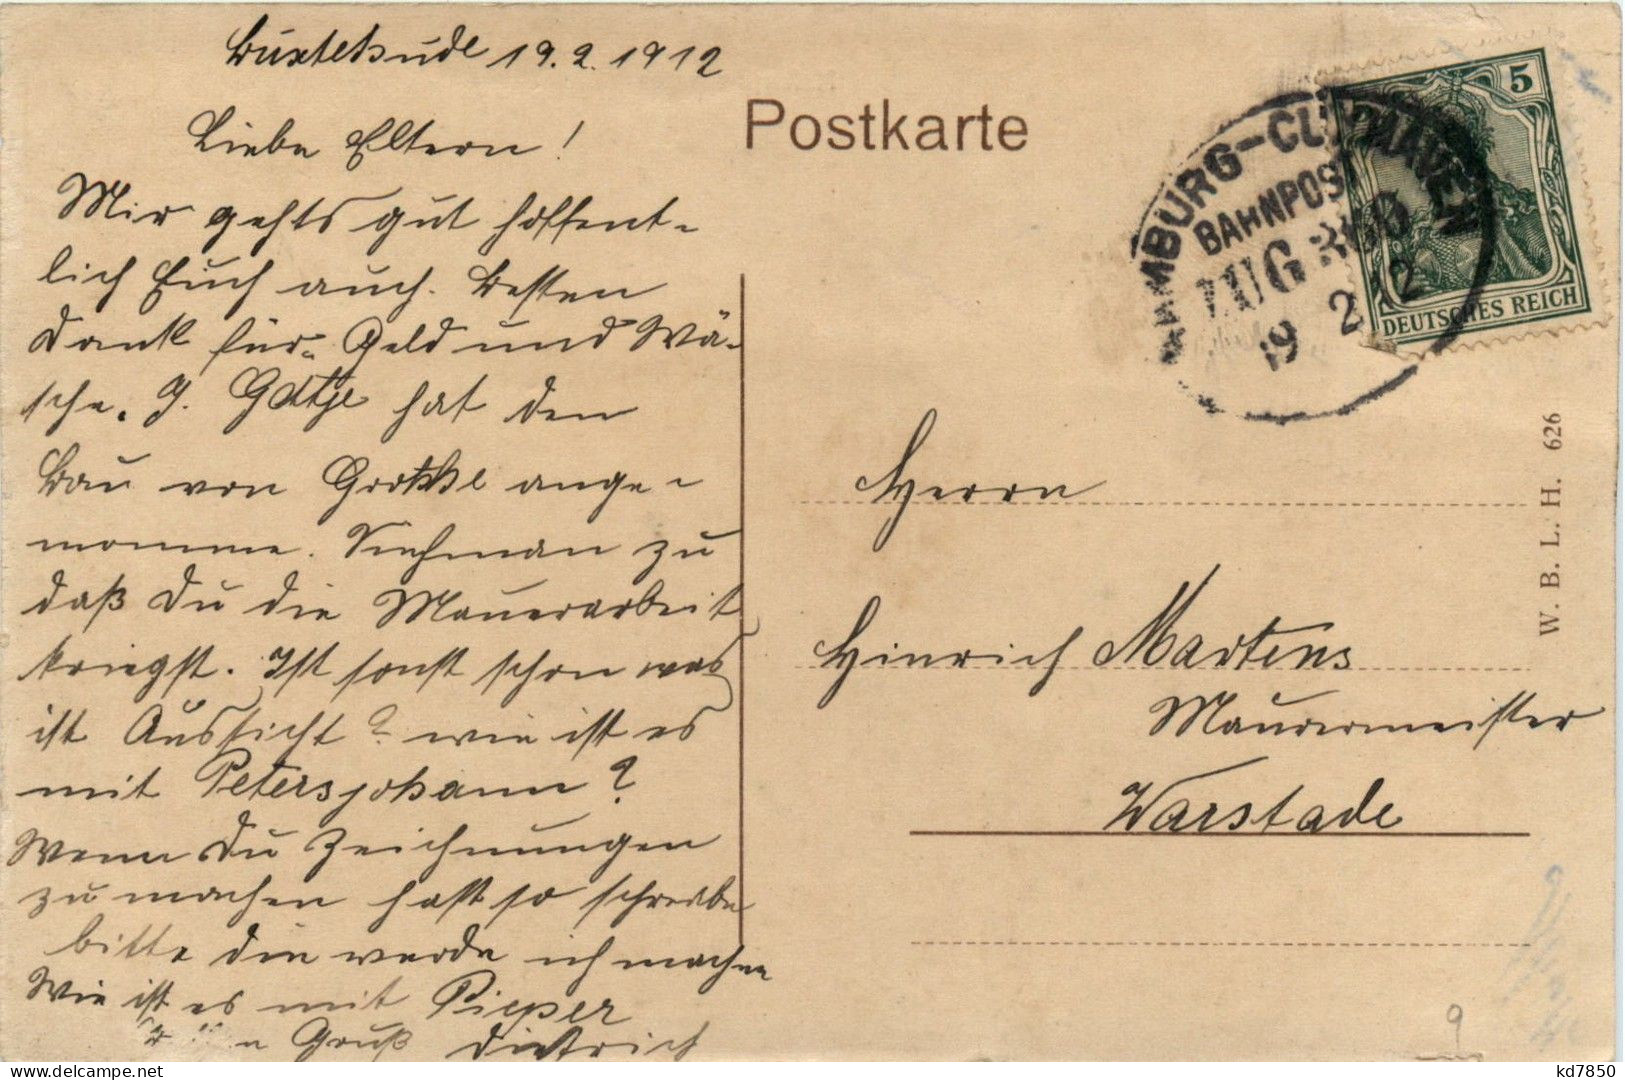 Buxtehude 19.2.1912
Liebe Eltern!
Mir gehts gut hoffent-
lich Euch auch. Besten
Dank für Geld und Wä-
sche. J. Gätje hat den
Bau von Grothke ange-
nommen. Sieh man zu
daß Du die Maurerarbeit
kriegst. Ist sonst schon was
ist Aussicht? wie ist es
mit Petersjohann?
Wenn Du Zeichnungen
zu machen hast so schreibe
bitte die werde ich machen
Wie ist es mit Pieper
Gruß Dietrich
Postkarte
HAMBURG-CUXHAVEN
BAHNPOST
ZUG
19 2 12
5
DEUTSCHES REICH
Herrn
Hinrich Martens
Maurermeister
Warstade
W. B. L. H. 626
9
kd7850